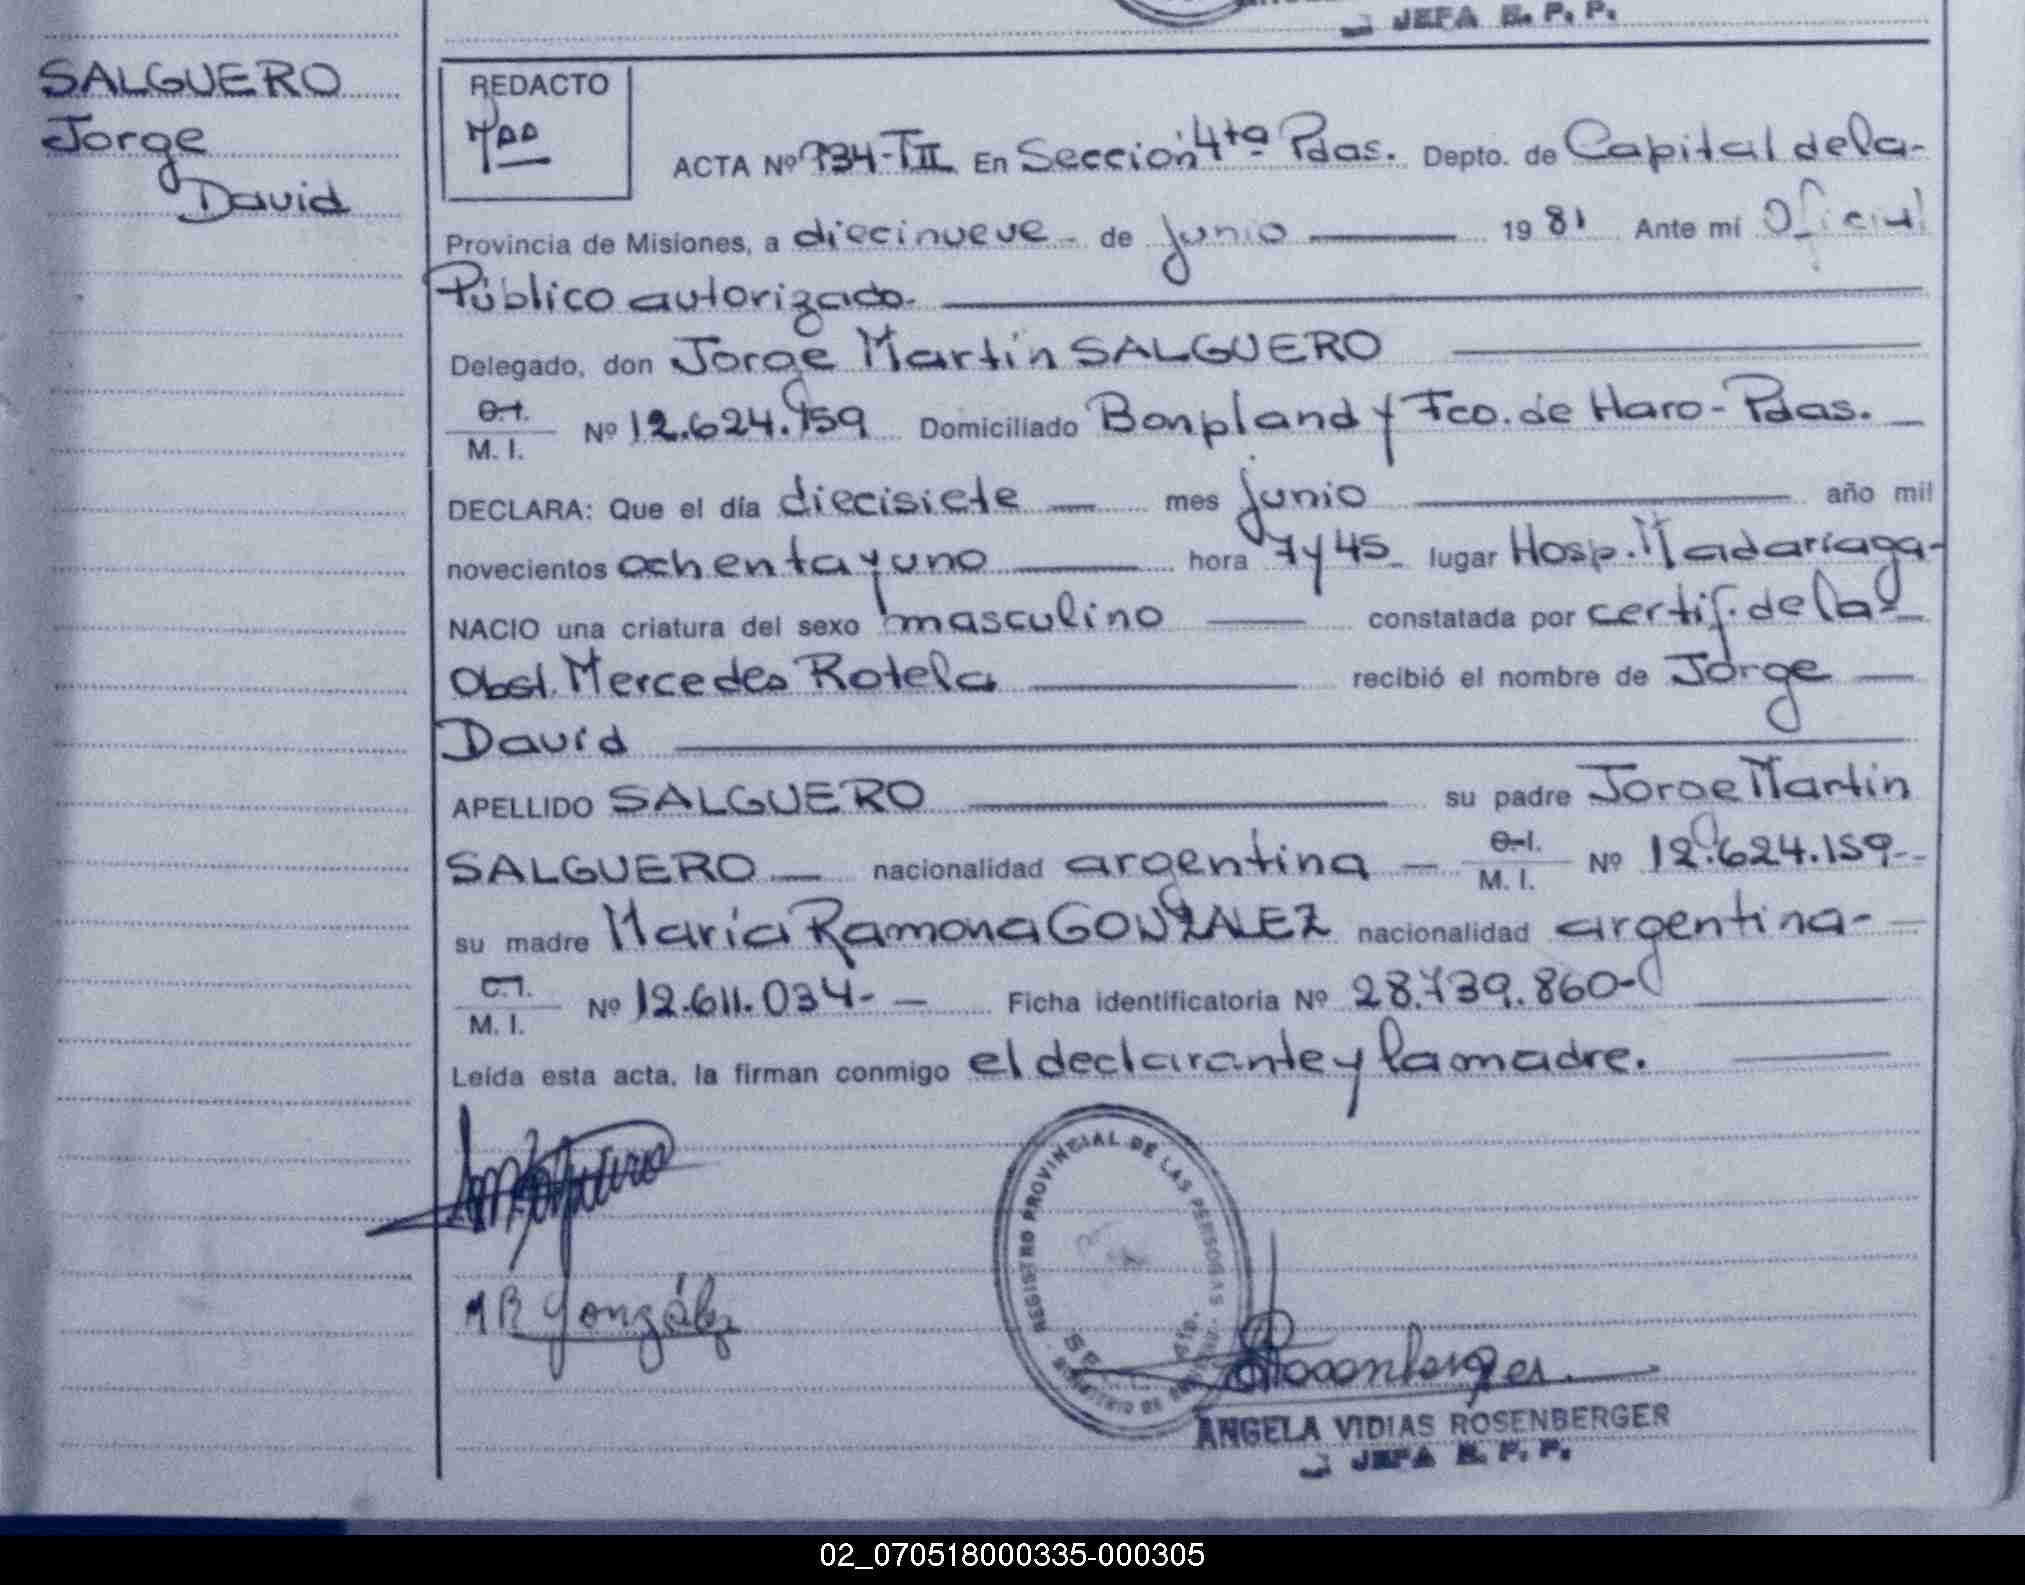 JEFA R. P. P.
SALGUERO
Jorge
David
REDACTO
ACTA Nº 734-TII En Sección 4ta Pdas. Depto. de Capital de la-
Provincia de Misiones, a diecinueve - de junio 1981 Ante mí Oficial
Público autorizado.
Delegado, don Jorge Martín SALGUERO
C.I.
M. I. Nº 12.624.159 Domiciliado Bonpland y Fco. de Haro - Pdas.
DECLARA: Que el día diecisiete mes junio año mil
novecientos ochenta y uno hora 7 y 45 lugar Hosp. Madariaga-
NACIO una criatura del sexo masculino constatada por certif. de la
Obst. Mercedes Rotela recibió el nombre de Jorge
David
APELLIDO SALGUERO su padre Jorge Martín
SALGUERO nacionalidad argentina C.I.
M. I. Nº 12.624.159-
su madre María Ramona GONZALEZ nacionalidad argentina-
C.I.
M. I. Nº 12.611.034- Ficha identificatoria Nº 28.739.860-
Leída esta acta, la firman conmigo el declarante y la madre.
REGISTRO PROVINCIAL DE LAS PERSONAS
MR González
Rosenberger
ANGELA VIDIAS ROSENBERGER
JEFA R. P. P.
02_070518000335-000305